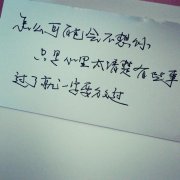 怎么可能会不想你
只是心里太清楚有些事
过了就一定要会过